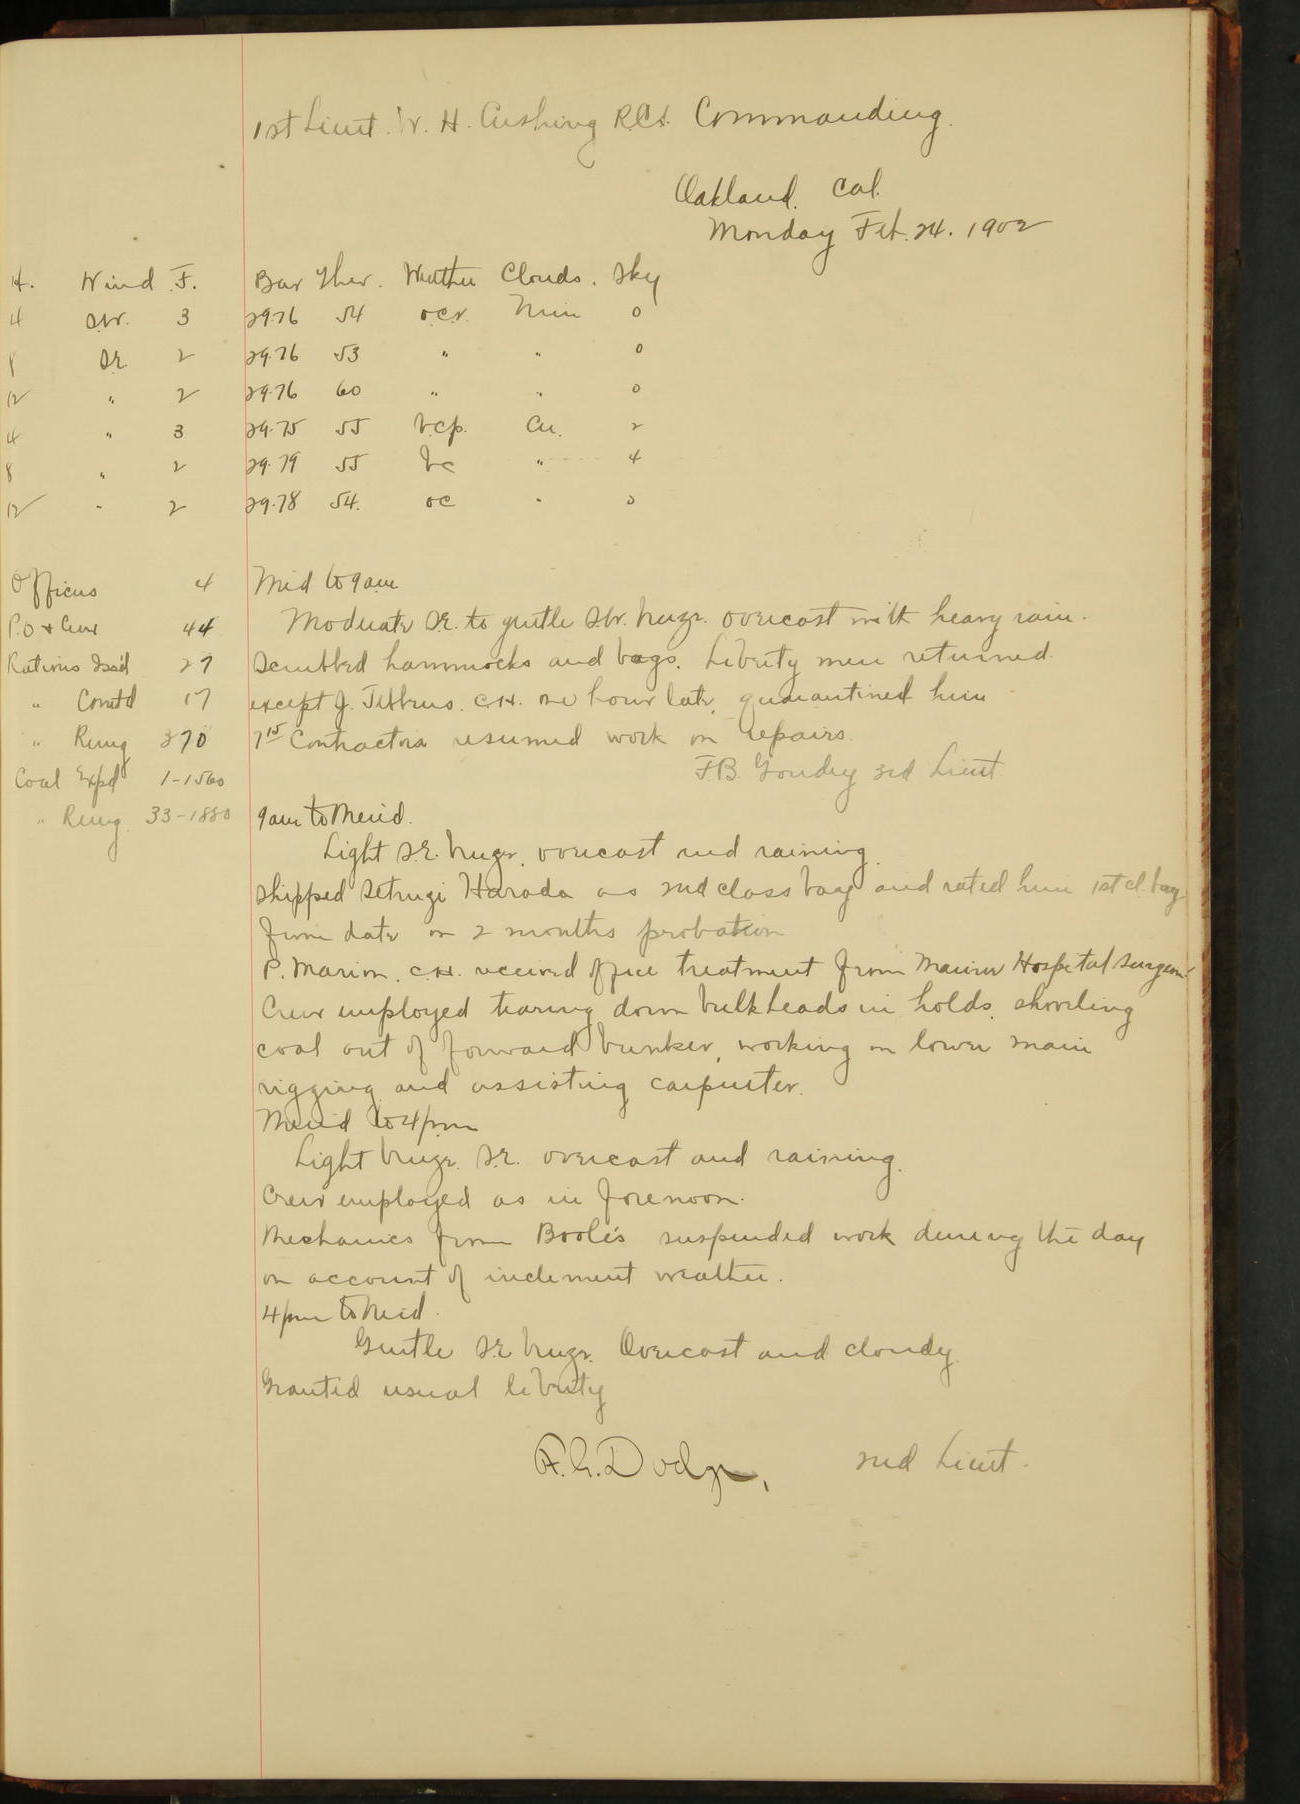 1st Lieut. W. H. Cushing R.C.S. Commanding.
Oakland. Cal.
Monday Feb. 24. 1902
H. Wind F. Bar Ther. Weather Clouds. Sky
4 SW. 3 29.76 54 ocr. Nim 0
8 SE. 2 29.76 53 " " 0
12 " 2 29.76 60 " " 0
4 " 3 29.75 55 bcp. Cu. 2
8 " 2 29.79 55 bc " 4
12 " 2 29.78 54. oc " 0
Officers 4
P.O & Crew 44
Rations Issd 27
" Comtd 17
" Remg 370
Coal Expd 1-1560
" Remg. 33-1880
Mid to 9 am
Moderate SE. to gentle SW. breeze. overcast with heavy rain.
Scrubbed hammocks and bags. Liberty men returned.
except J. C.H. one hour late, quarantined him
7 15 Contractors resumed work on repairs.
F.B. Goudey 3rd Lieut.
9 am to Merid.
Light S.E. breeze. overcast and raining.
Shipped Setsugi Harada as 2nd class boy and rated him 1st cl. boy
from date on 2 months probation
P. Marion. C.H. received office treatment from Marine Hospital Surgeon.
Crew employed tearing down bulkheads in holds, shoveling
coal out of forward bunker, working on lower main
rigging and assisting carpenter.
Merid to 4 pm
Light breeze. S.E. overcast and raining.
Crew employed as in forenoon.
Mechanics from Boole's suspended work during the day
on account of inclement weather.
4 pm to Mid.
Gentle S.E breeze. Overcast and cloudy.
Granted usual liberty
F. G. Dodge, 2nd Lieut.